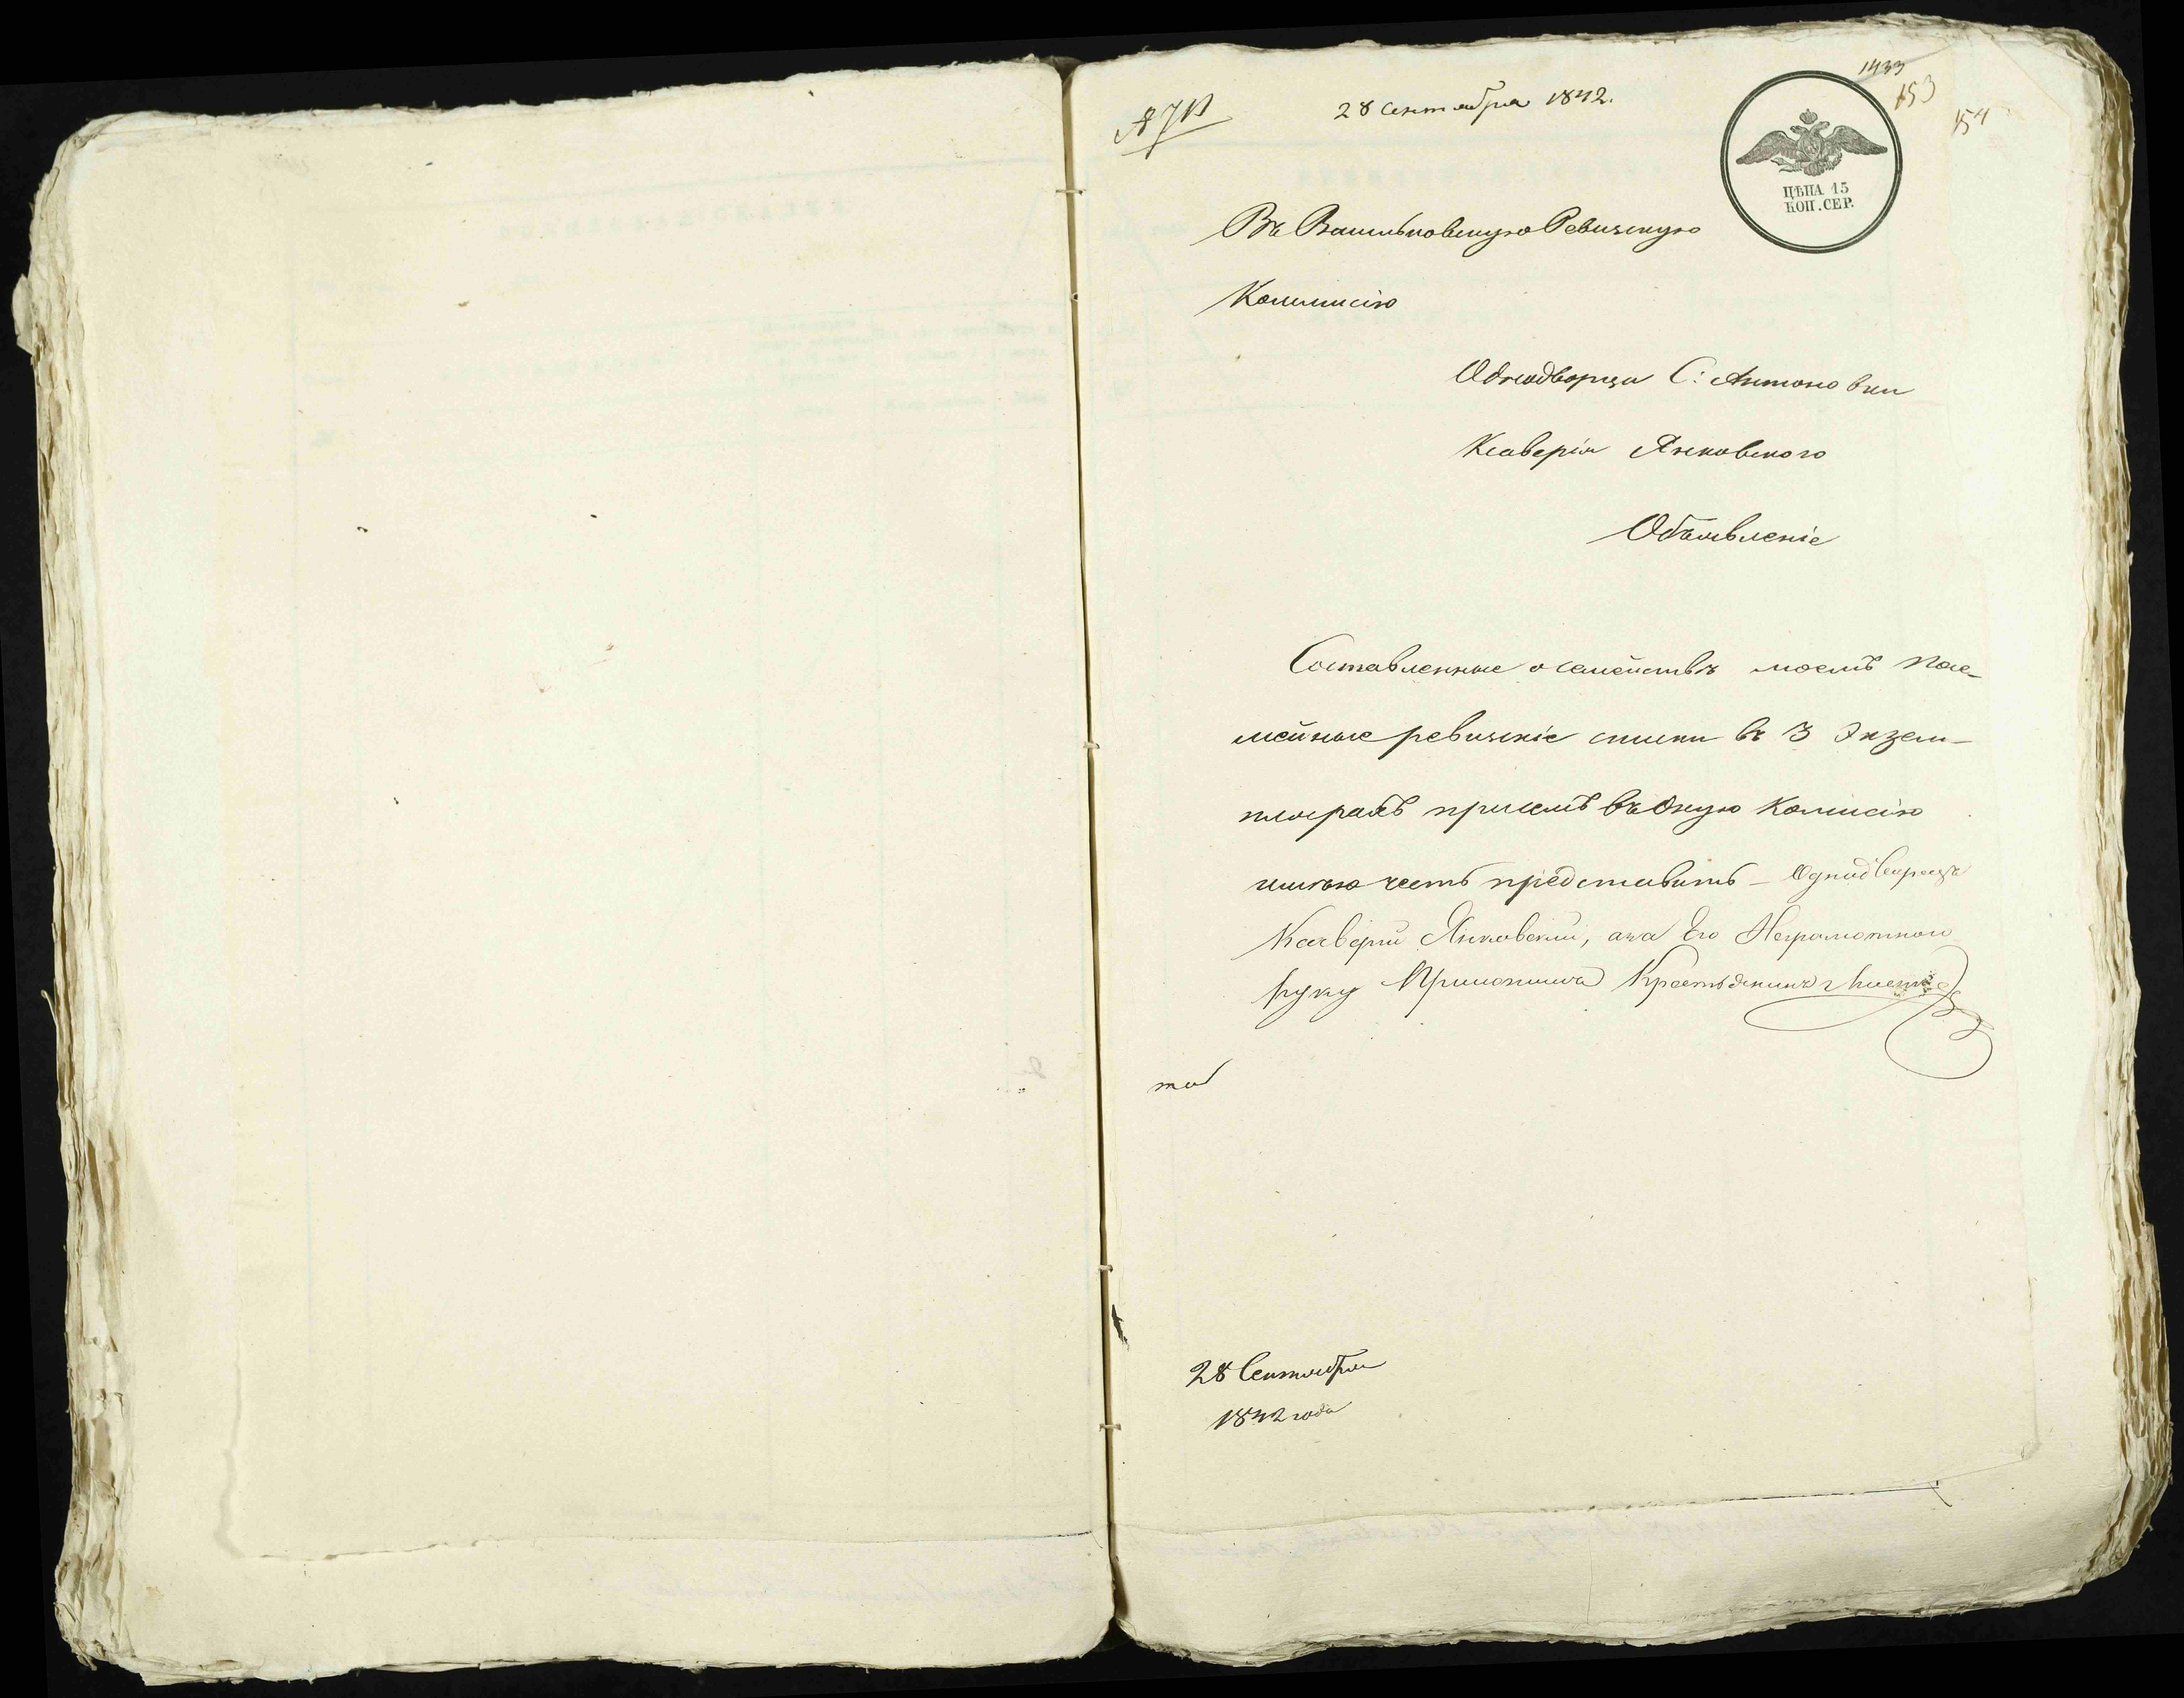 28 Сентября 1842.
1433
153
154
ЦѢНА 15
КОП. СЕР.
Въ Васильковскую Ревизскую
Коммисію
Однодворца С: Антоновки
Ксаверія Янковского
Объявленіе
Составленные о семействѣ моемъ посе-
мейные ревизскіе списки въ 3 Экзем-
плярахъ присемъ въ Оную Комисію
имѣю честь представить – Однодворецъ
Ксаверій Янковскій, аза Его Неграмотного
руку Приложилъ Крестьянинъ
28 Сентября
1842 года